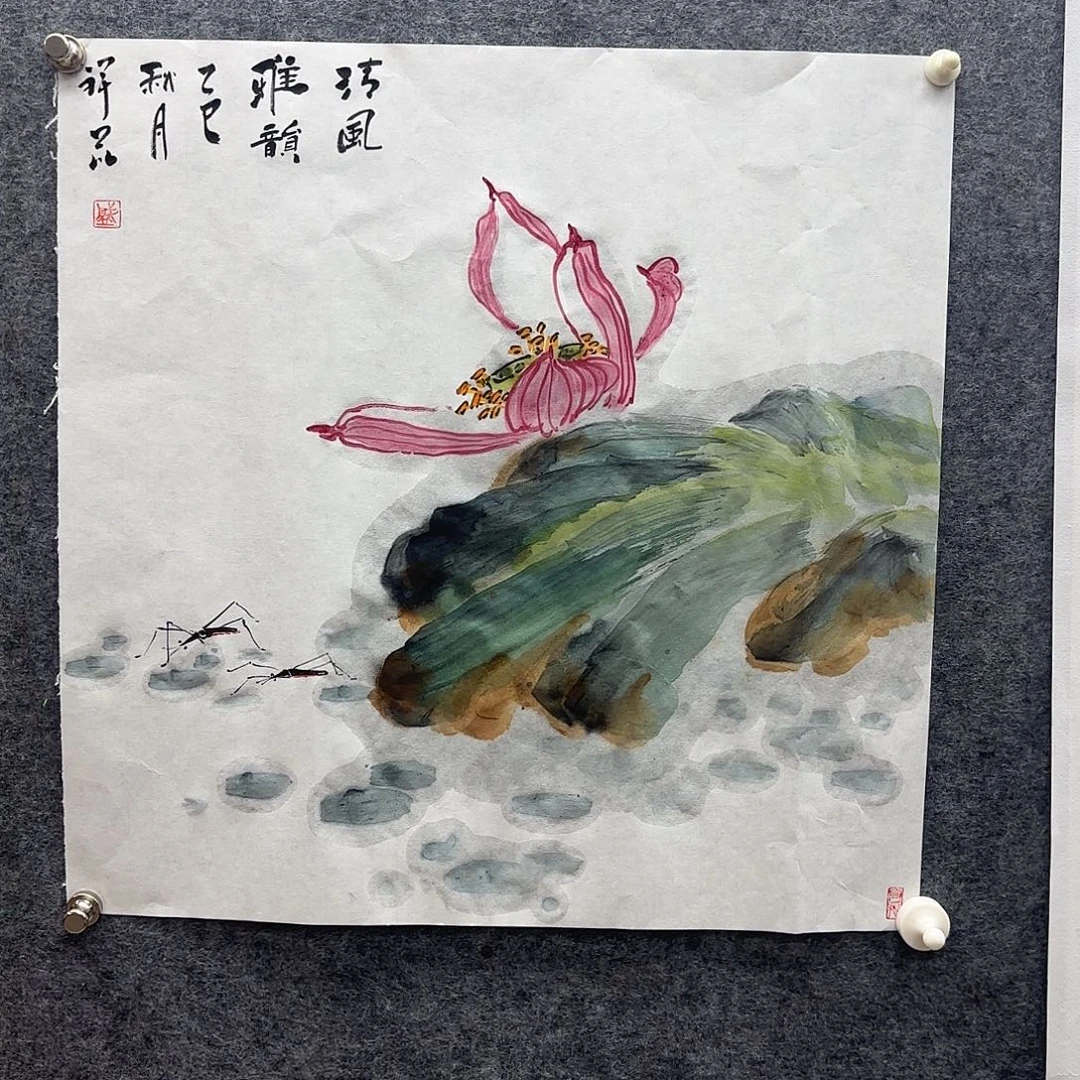 清风
雅韻
乙巳
秋月
祥荣